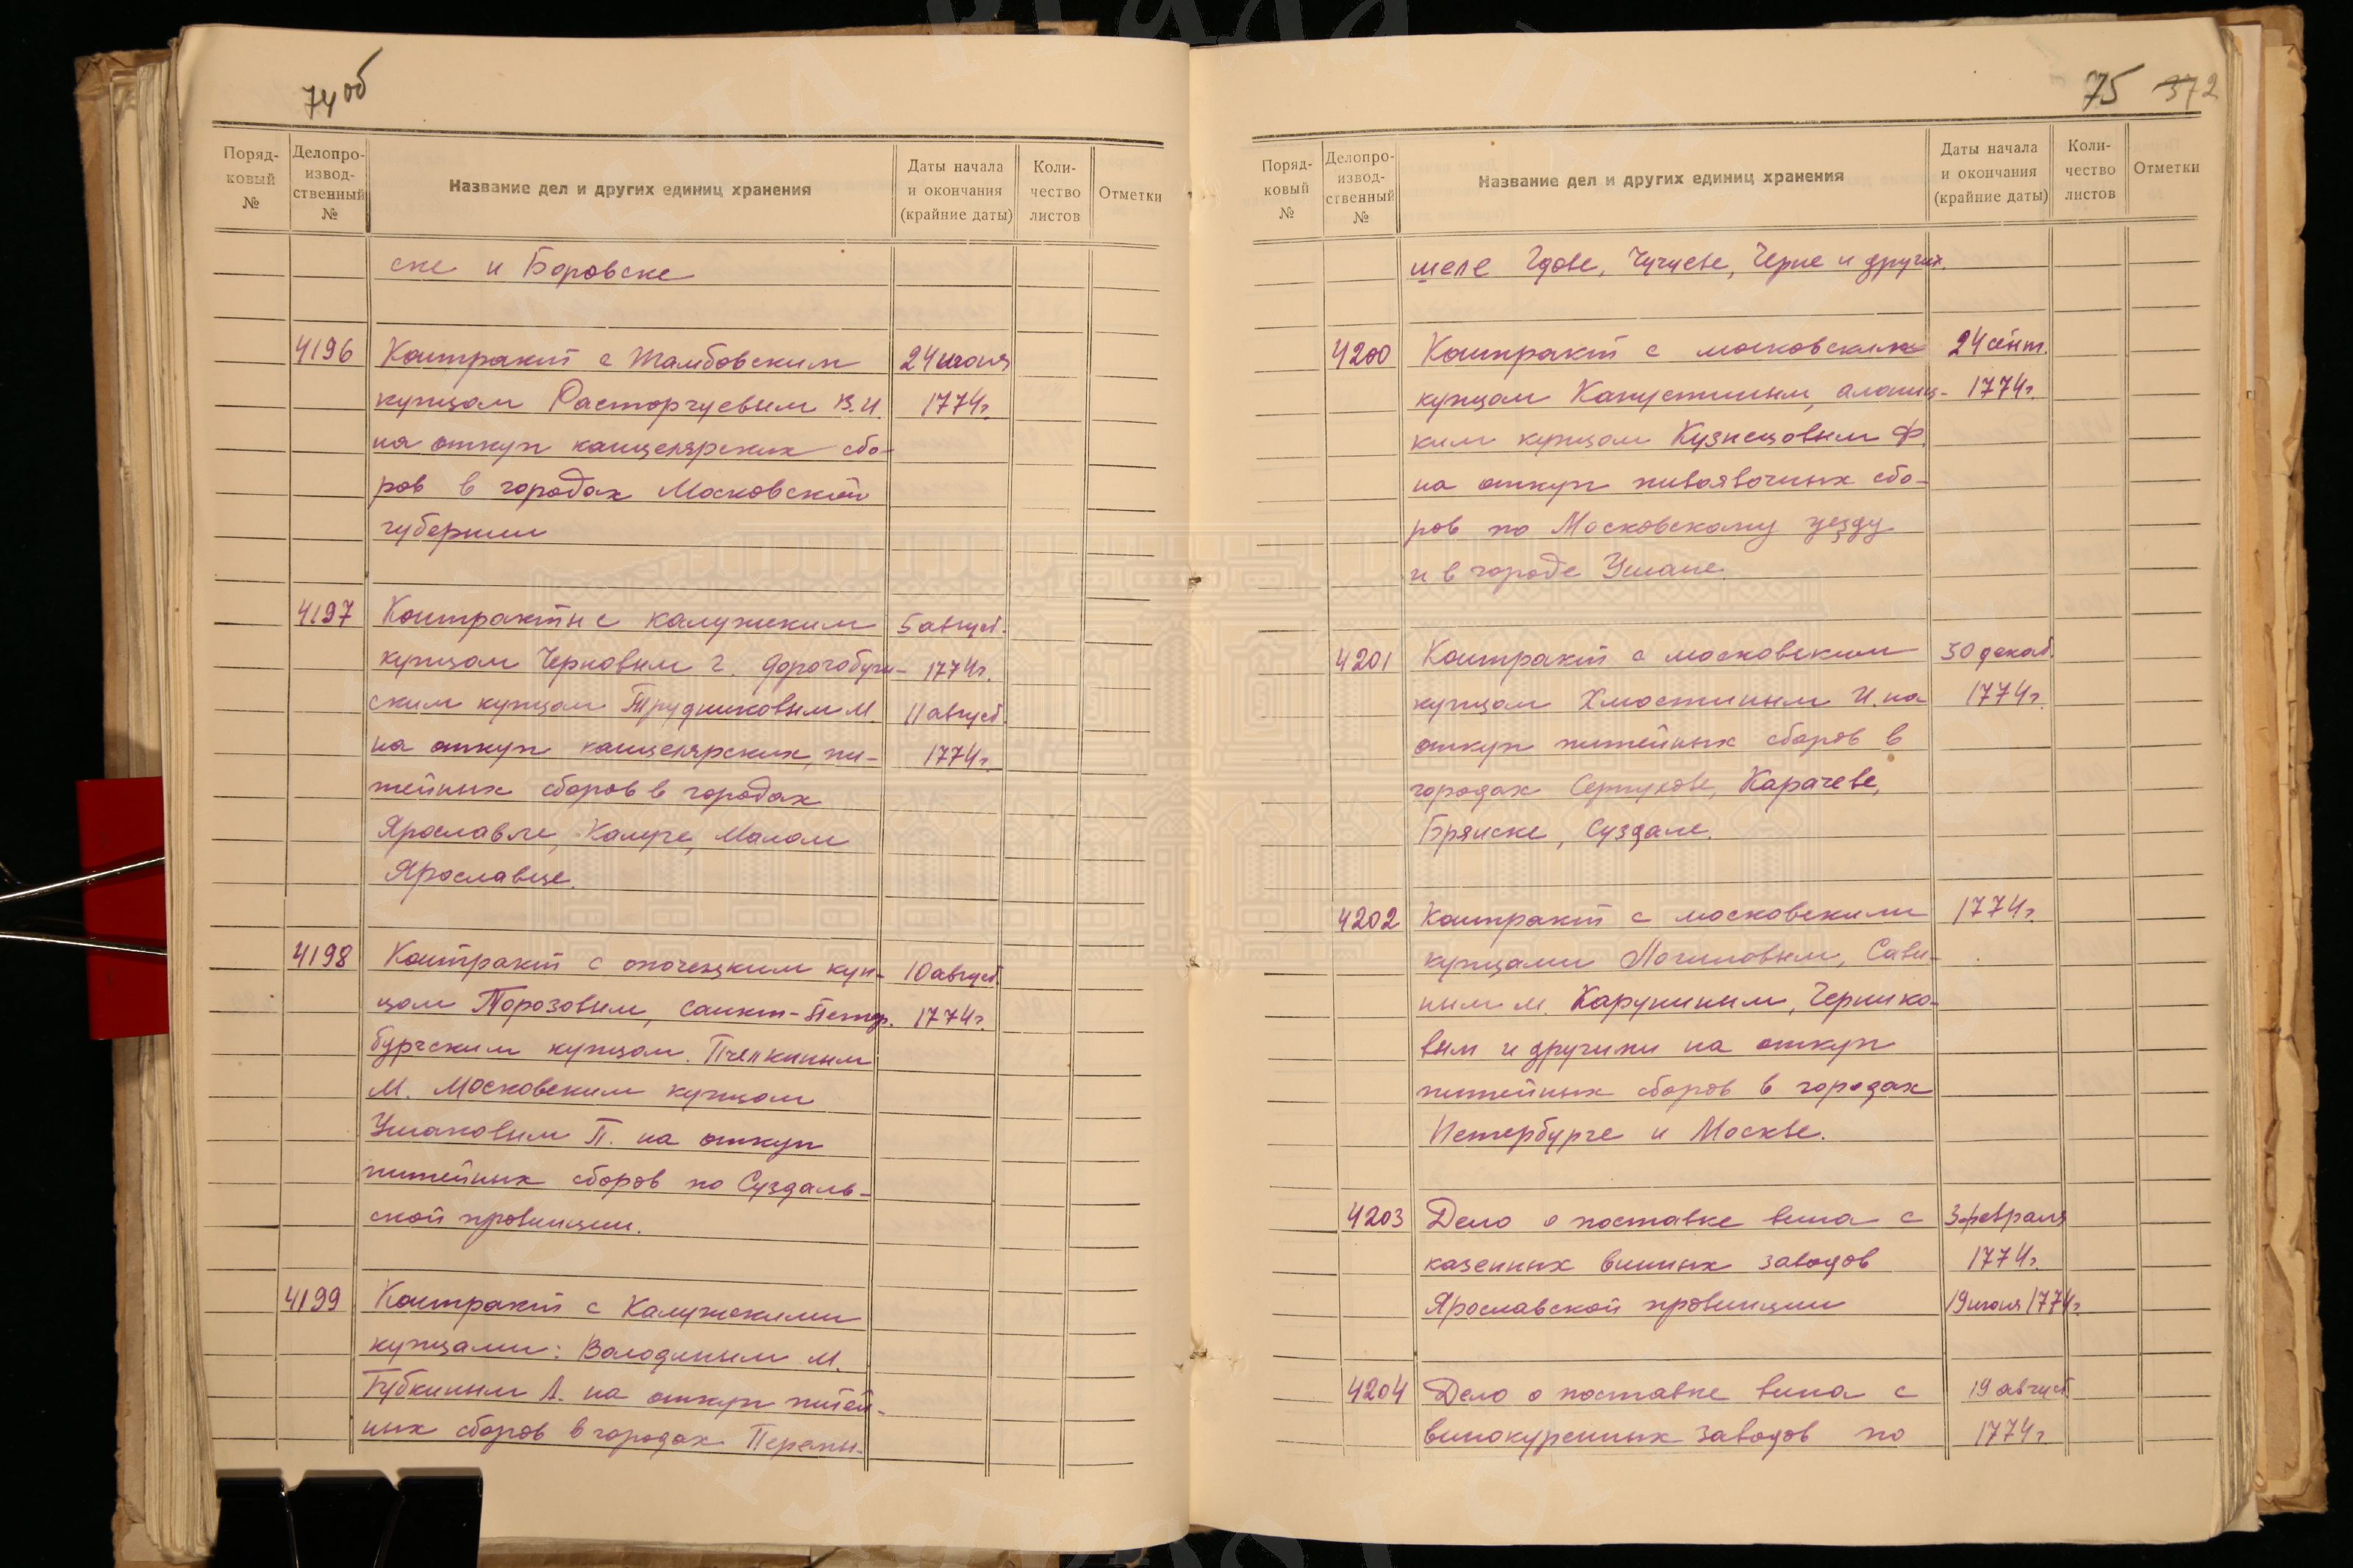 74об
Поряд-
ковый
№
Делопро-
извод-
ственный
№
Название дел и других единиц хранения
Даты начала
и окончания
(крайние даты)
Коли-
чество
листов
Отметки
ске и Боровске
4196 Контракт с тамбовским 24 июля
купцом Расторгуевым В.И. 1774г.
на откуп канцелярских сбо-
ров в городах Московской
губернии
4197 Контракты с калужским 5 август.
купцом Черновым г. дорогобуж- 1774г.
ским купцом Трудниковым М. 11 август.
на откуп канцелярских, пи- 1774г.
тейных сборов в городах
Ярославле, Калуге, Малом
Ярославце.
4198 Контракт с опочецким куп- 10 август.
цом Порозовым, Санкт-Петер. 1774г.
бургским купцом. Пчелкиным
М. Московским купцом
Ушаковым П. на откуп
питейных сборов по Суздаль-
ской провинции.
4199 Контракт с Калужскими
купцами: Володиным М.
Губкиным А. на откуп питей-
ных сборов в городах Перемы-
75 372
Поряд-
ковый
№
Делопро-
извод-
ственный
№
Название дел и других единиц хранения
Даты начала
и окончания
(крайние даты)
Коли-
чество
листов
Отметки
шеле Гдове, Чугуеве, Черне и других.
4200 Контракт с московским 24 сент.
купцом Капустиным, алатыр- 1774г.
ким купцом Кузнецовым Ф.
на откуп пивоявочных сбо-
ров по Московскому уезду
и в городе Усмане.
4201 Контракт с московским 30 декаб.
купцом Хмостиным И. на 1774г.
откуп питейных сборов в
городах Серпухове, Карачеве,
Брянске, Суздале.
4202 Контракт с московскими 1774г.
купцами Логиновым, Сави-
ным М. Карупиным, Чернико-
вым и другими на откуп
питейных сборов в городах
Петербурге и Москве.
4203 Дело о поставке вина с 3 февраля
казенных винных заводов 1774г.
Ярославской провинции 19 июля 1774г.
4204 Дело о поставке вина с 19 август
винокуренных заводов по 1774г